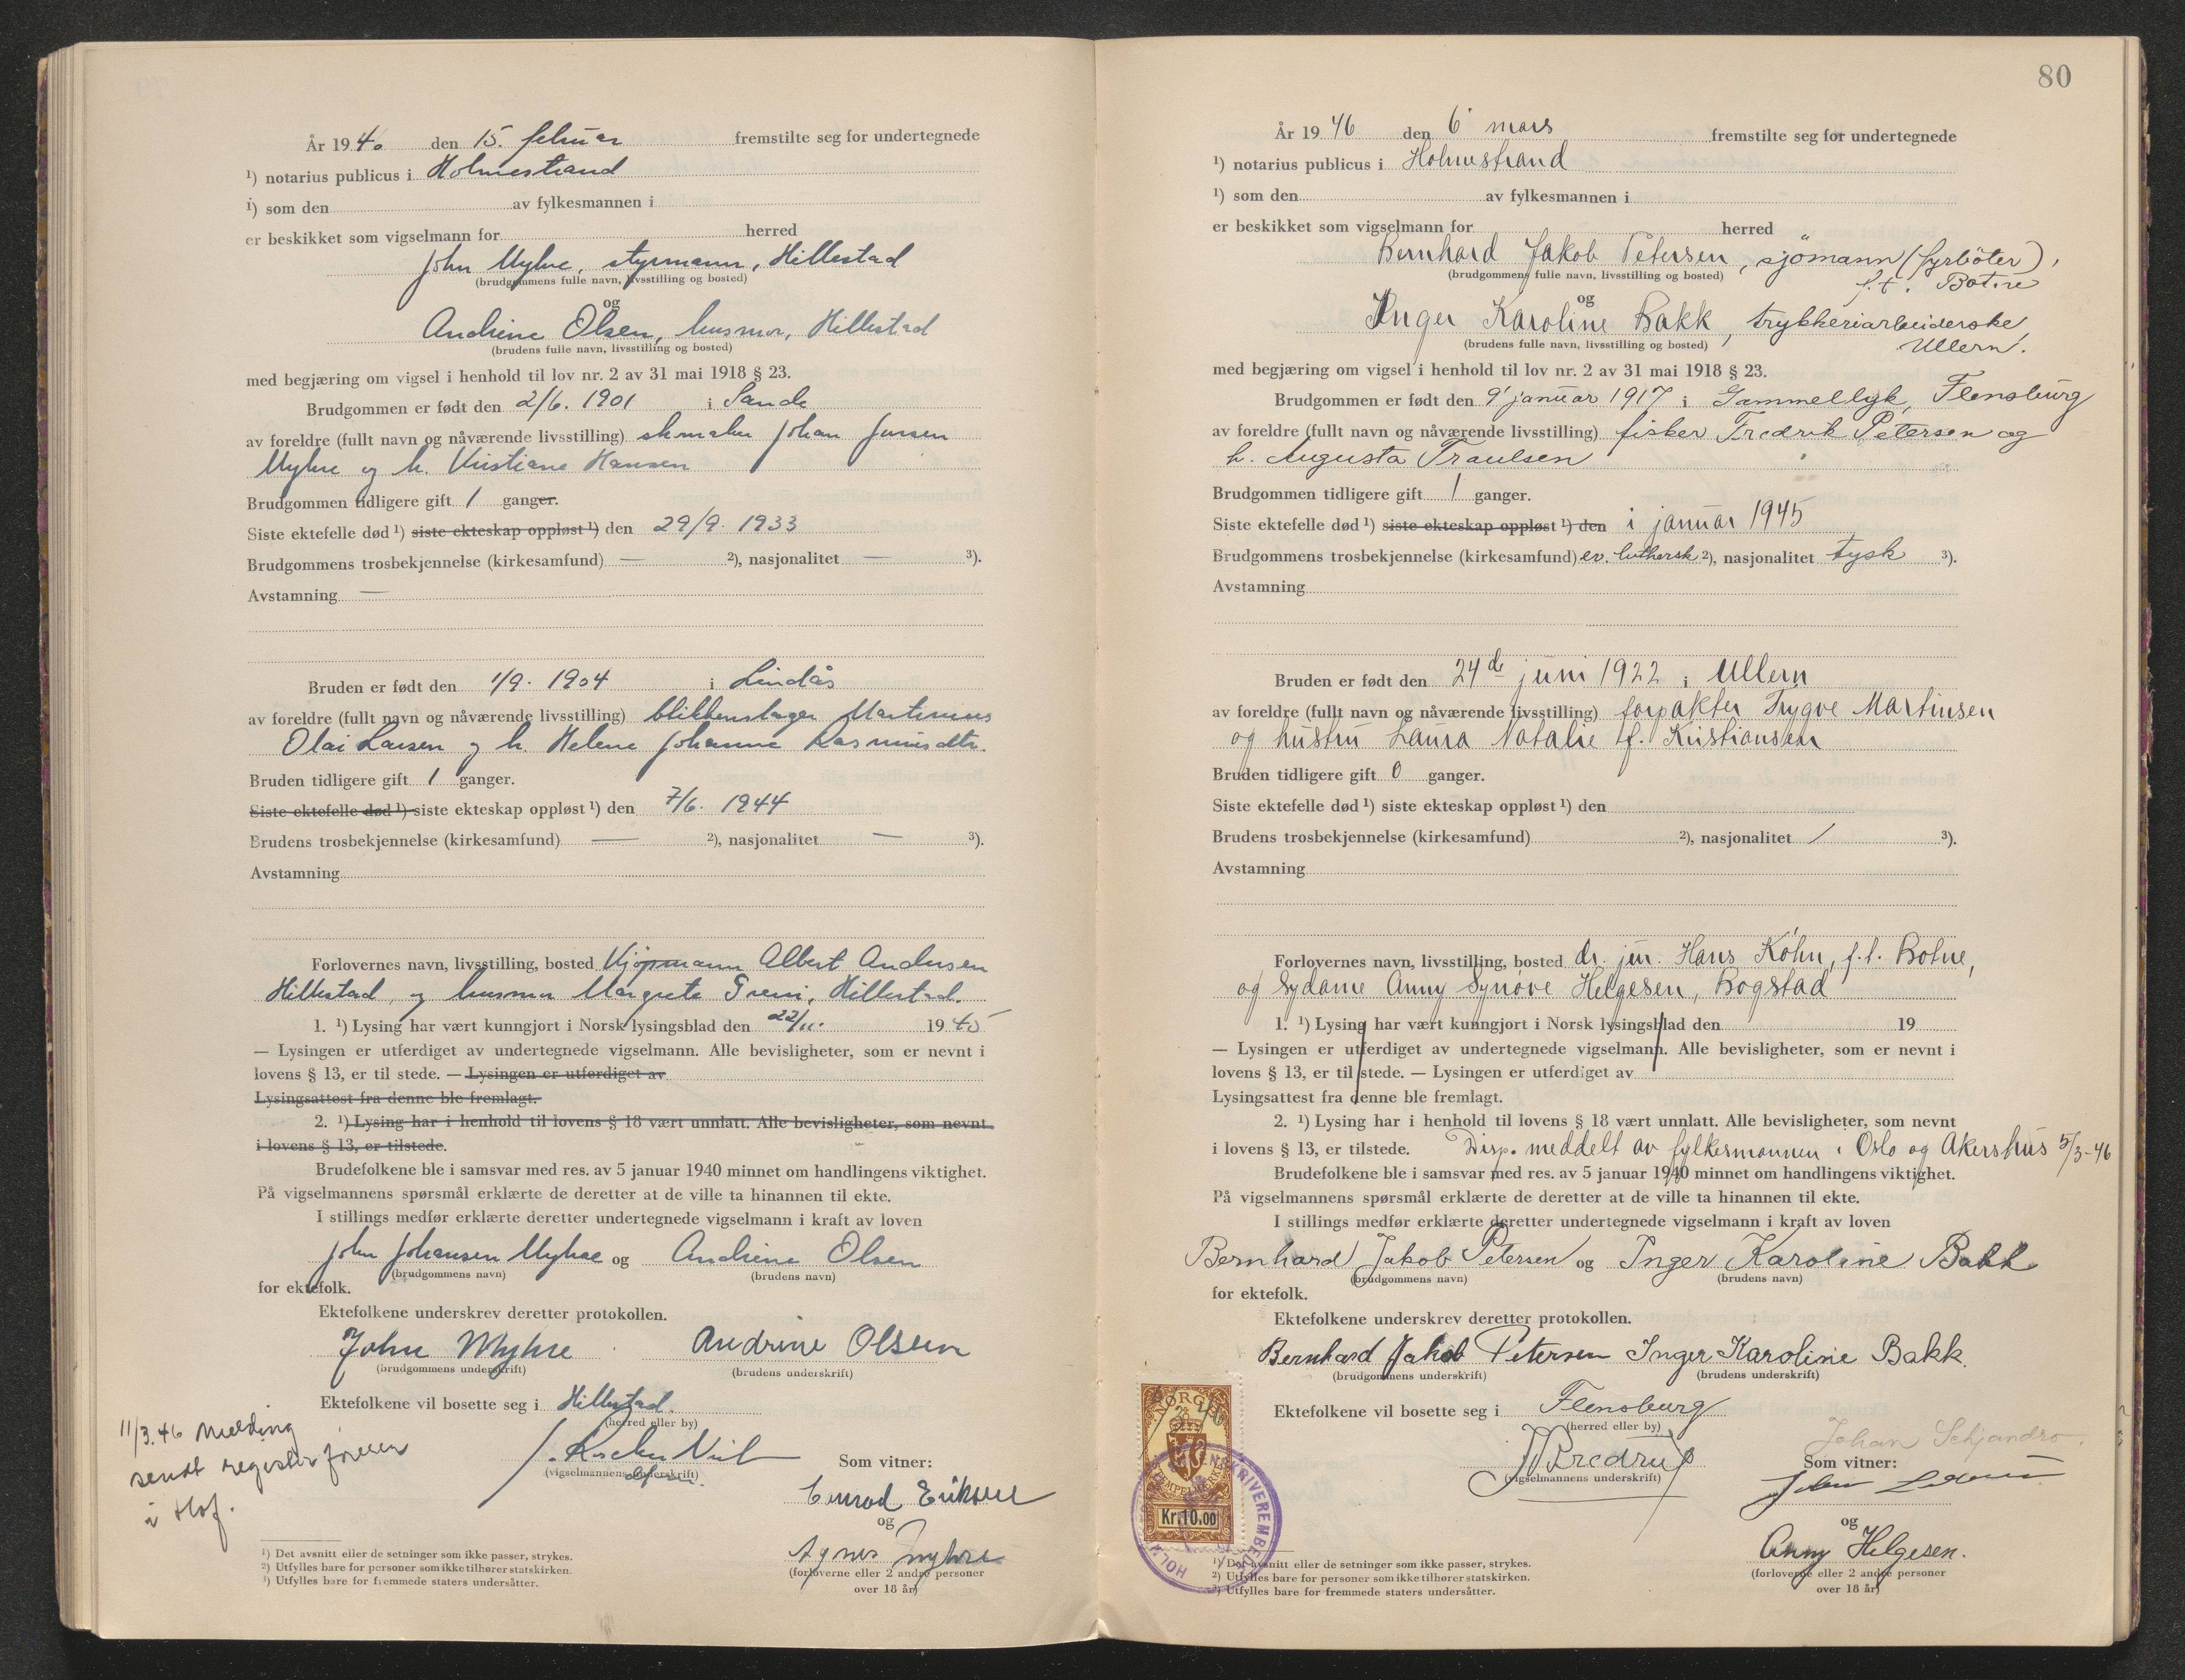 År 1946 den 15. februar fremstilte seg for undertegnede
¹) notarius publicus i Holmestrand
¹) som den av fylkesmannen i
er beskikket som vigselmann for herred
John Myhre, styrmann, Hillestad
(brudgommens fulle navn, livsstilling og bosted)
og
Andrine Olsen, husmor, Hillestad
(brudens fulle navn, livsstilling og bosted)
med begjæring om vigsel i henhold til lov nr. 2 av 31 mai 1918 § 23.
Brudgommen er født den 2/6. 1901 i Sande
av foreldre (fullt navn og nåværende livsstilling) skomaker Johan Jensen
Myhre og h. Kristiane Hansen
Brudgommen tidligere gift 1 ganger.
Siste ektefelle død ¹) siste ekteskap oppløst ¹) den 29/9. 1933
Brudgommens trosbekjennelse (kirkesamfund) — ²), nasjonalitet — ³).
Avstamning —
Bruden er født den 1/9. 1904 i Lindås
av foreldre (fullt navn og nåværende livsstilling) blikkenslager Martinius
Olai Larsen og h. Helene Johanne Rasmusdtr.
Bruden tidligere gift 1 ganger.
Siste ektefelle død ¹) siste ekteskap oppløst ¹) den 7/6. 1944
Brudens trosbekjennelse (kirkesamfund) — ²), nasjonalitet — ³).
Avstamning
Forlovernes navn, livsstilling, bosted Kjøpmann Albert Andersen
Hillestad, og husmor Margrete Greni, Hillestad.
1. ¹) Lysing har vært kunngjort i Norsk lysingsblad den 22/11. 1945
— Lysingen er utferdiget av undertegnede vigselmann. Alle bevisligheter, som er nevnt i
lovens § 13, er til stede. — Lysingen er utferdiget av
Lysingsattest fra denne ble fremlagt.
2. ¹) Lysing har i henhold til lovens § 18 vært unnlatt. Alle bevisligheter, som nevnt
i lovens § 13, er tilstede.
Brudefolkene ble i samsvar med res. av 5 januar 1940 minnet om handlingens viktighet.
På vigselmannens spørsmål erklærte de deretter at de ville ta hinannen til ekte.
I stillings medfør erklærte deretter undertegnede vigselmann i kraft av loven
John Johansen Myhre og Andrine Olsen
(brudgommens navn) (brudens navn)
for ektefolk.
Ektefolkene underskrev deretter protokollen.
John Myhre Andrine Olsen
(brudgommens underskrift) (brudens underskrift)
Ektefolkene vil bosette seg i Hillestad.
(herred eller by)
11/3.46 Melding
sendt registerføreren
i Hof.
(vigselmannens underskrift)
Som vitner:
Conrad Eriksen
og
Agnes Myhre
(forloverne eller 2 andre personer
over 18 år)
¹) Det avsnitt eller de setninger som ikke passer, strykes.
²) Utfylles bare for personer som ikke tilhører statskirken.
³) Utfylles bare for fremmede staters undersåtter.
80
År 1946 den 6' mars fremstilte seg for undertegnede
¹) notarius publicus i Holmestrand
¹) som den av fylkesmannen i
er beskikket som vigselmann for herred
Bernhard Jakob Petersen, sjömann (fyrböter),
(brudgommens fulle navn, livsstilling og bosted)
f.t. Botne
og
Inger Karoline Bakk, trykkeriarbeiderske,
(brudens fulle navn, livsstilling og bosted)
Ullern.
med begjæring om vigsel i henhold til lov nr. 2 av 31 mai 1918 § 23.
Brudgommen er født den 9' januar 1917 i Gammellyk, Flensburg
av foreldre (fullt navn og nåværende livsstilling) fisker Fredrik Petersen og
h. Augusta Traulsen
Brudgommen tidligere gift 1 ganger.
Siste ektefelle død ¹) siste ekteskap oppløst ¹) den i januar 1945
Brudgommens trosbekjennelse (kirkesamfund) ev. luthersk ²), nasjonalitet tysk ³).
Avstamning
Bruden er født den 24de juni 1922 i Ullern
av foreldre (fullt navn og nåværende livsstilling) forpakter Trygve Martinsen
og hustru Laura Natalie f. Kristiansen
Bruden tidligere gift 0 ganger.
Siste ektefelle død ¹) siste ekteskap oppløst ¹) den
Brudens trosbekjennelse (kirkesamfund) ²), nasjonalitet / ³).
Avstamning
Forlovernes navn, livsstilling, bosted dr. jur. Hans Köhn, f.t. Botne,
og sydame Anny Synøve Helgesen, Bogstad
1. ¹) Lysing har vært kunngjort i Norsk lysingsblad den 19
— Lysingen er utferdiget av undertegnede vigselmann. Alle bevisligheter, som er nevnt i
lovens § 13, er til stede. — Lysingen er utferdiget av
Lysingsattest fra denne ble fremlagt.
2. ¹) Lysing har i henhold til lovens § 18 vært unnlatt. Alle bevisligheter, som nevnt
i lovens § 13, er tilstede. Disp. meddelt av fylkesmannen i Oslo og Akershus 5/3-46
Brudefolkene ble i samsvar med res. av 5 januar 1940 minnet om handlingens viktighet.
På vigselmannens spørsmål erklærte de deretter at de ville ta hinannen til ekte.
I stillings medfør erklærte deretter undertegnede vigselmann i kraft av loven
Bernhard Jakob Petersen og Inger Karoline Bakk
(brudgommens navn) (brudens navn)
for ektefolk.
Ektefolkene underskrev deretter protokollen.
Bernhard Jakob Petersen Inger Karoline Bakk
(brudgommens underskrift) (brudens underskrift)
Ektefolkene vil bosette seg i Flensburg
(herred eller by)
Bredrup
(vigselmannens underskrift)
Johan
Som vitner:
og
Anny Helgesen.
(forloverne eller 2 andre personer
over 18 år)
NORGE
Kr.10.00
¹) Det avsnitt eller de setninger som ikke passer, strykes.
²) Utfylles bare for personer som ikke tilhører statskirken.
³) Utfylles bare for fremmede staters undersåtter.